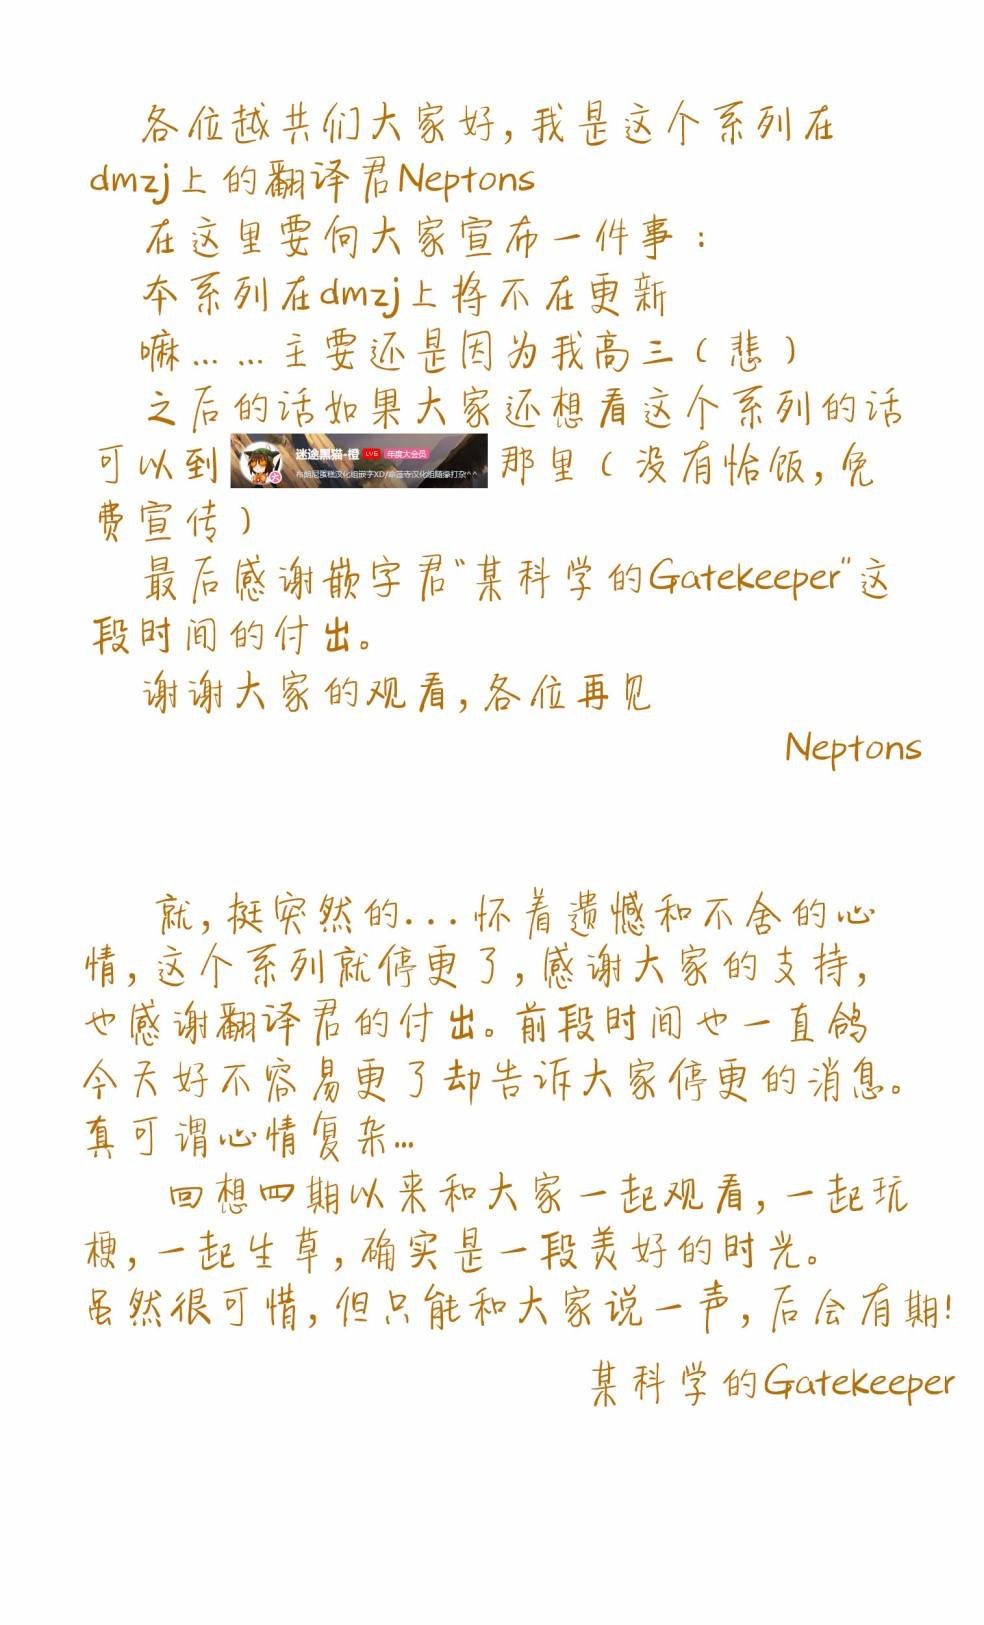 各位越共们大家好,我是这个系列在
dmzj上的翻译君Neptons
在这里要向大家宣布一件事:
本系列在dmzj上将不在更新
嘛……主要还是因为我高三(悲)
之后的话如果大家还想看这个系列的话
可以到 迷途黑猫-橙 LV5 年度大会员 那里(没有恰饭,免
布朗尼蛋糕汉化组嵌字XD/ 寺汉化组随缘打杂^^
费宣传)
最后感谢嵌字君“某科学的Gatekeeper”这
段时间的付出。
谢谢大家的观看,各位再见
Neptons
就,挺突然的...怀着遗憾和不舍的心
情,这个系列就停更了,感谢大家的支持,
也感谢翻译君的付出。前段时间也一直鸽
今天好不容易更了却告诉大家停更的消息。
真可谓心情复杂...
回想四期以来和大家一起观看,一起玩
梗,一起生草,确实是一段美好的时光。
虽然很可惜,但只能和大家说一声,后会有期!
某科学的Gatekeeper